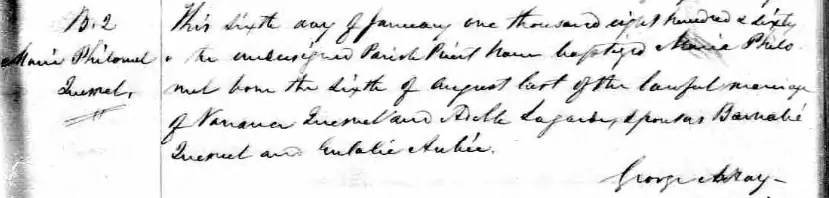 B. 2
Marie Philomel
Quesnel.
This Sixth day of January one thousand eight hundred & sixty
the undersigned Parish Priest have baptized Marie Philo
mel born the Sixth of August last of the lawful marriage
of Quesnel and Adelle Sponsors Barnabé
Quesnel and Eulalie Aubée.
George